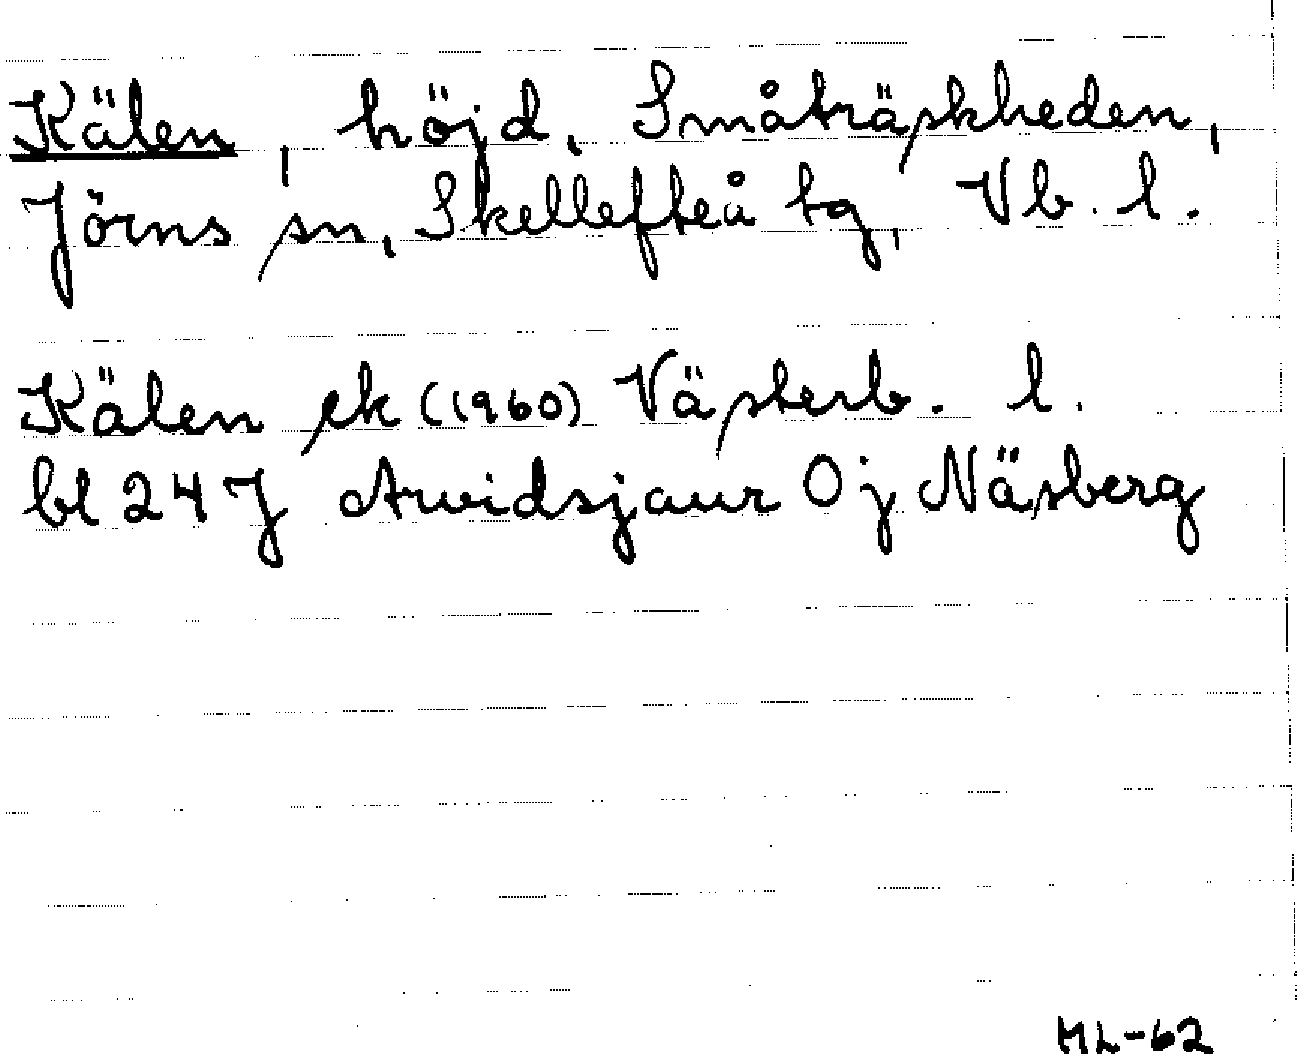 Kälen, höjd, Småträskheden,
Jörns sn, Skellefteå tg, Vb. l.
Kälen ek (1960) Västerb. l.
bl 24 J Arvidsjaur Oj Näsberg
ML-62